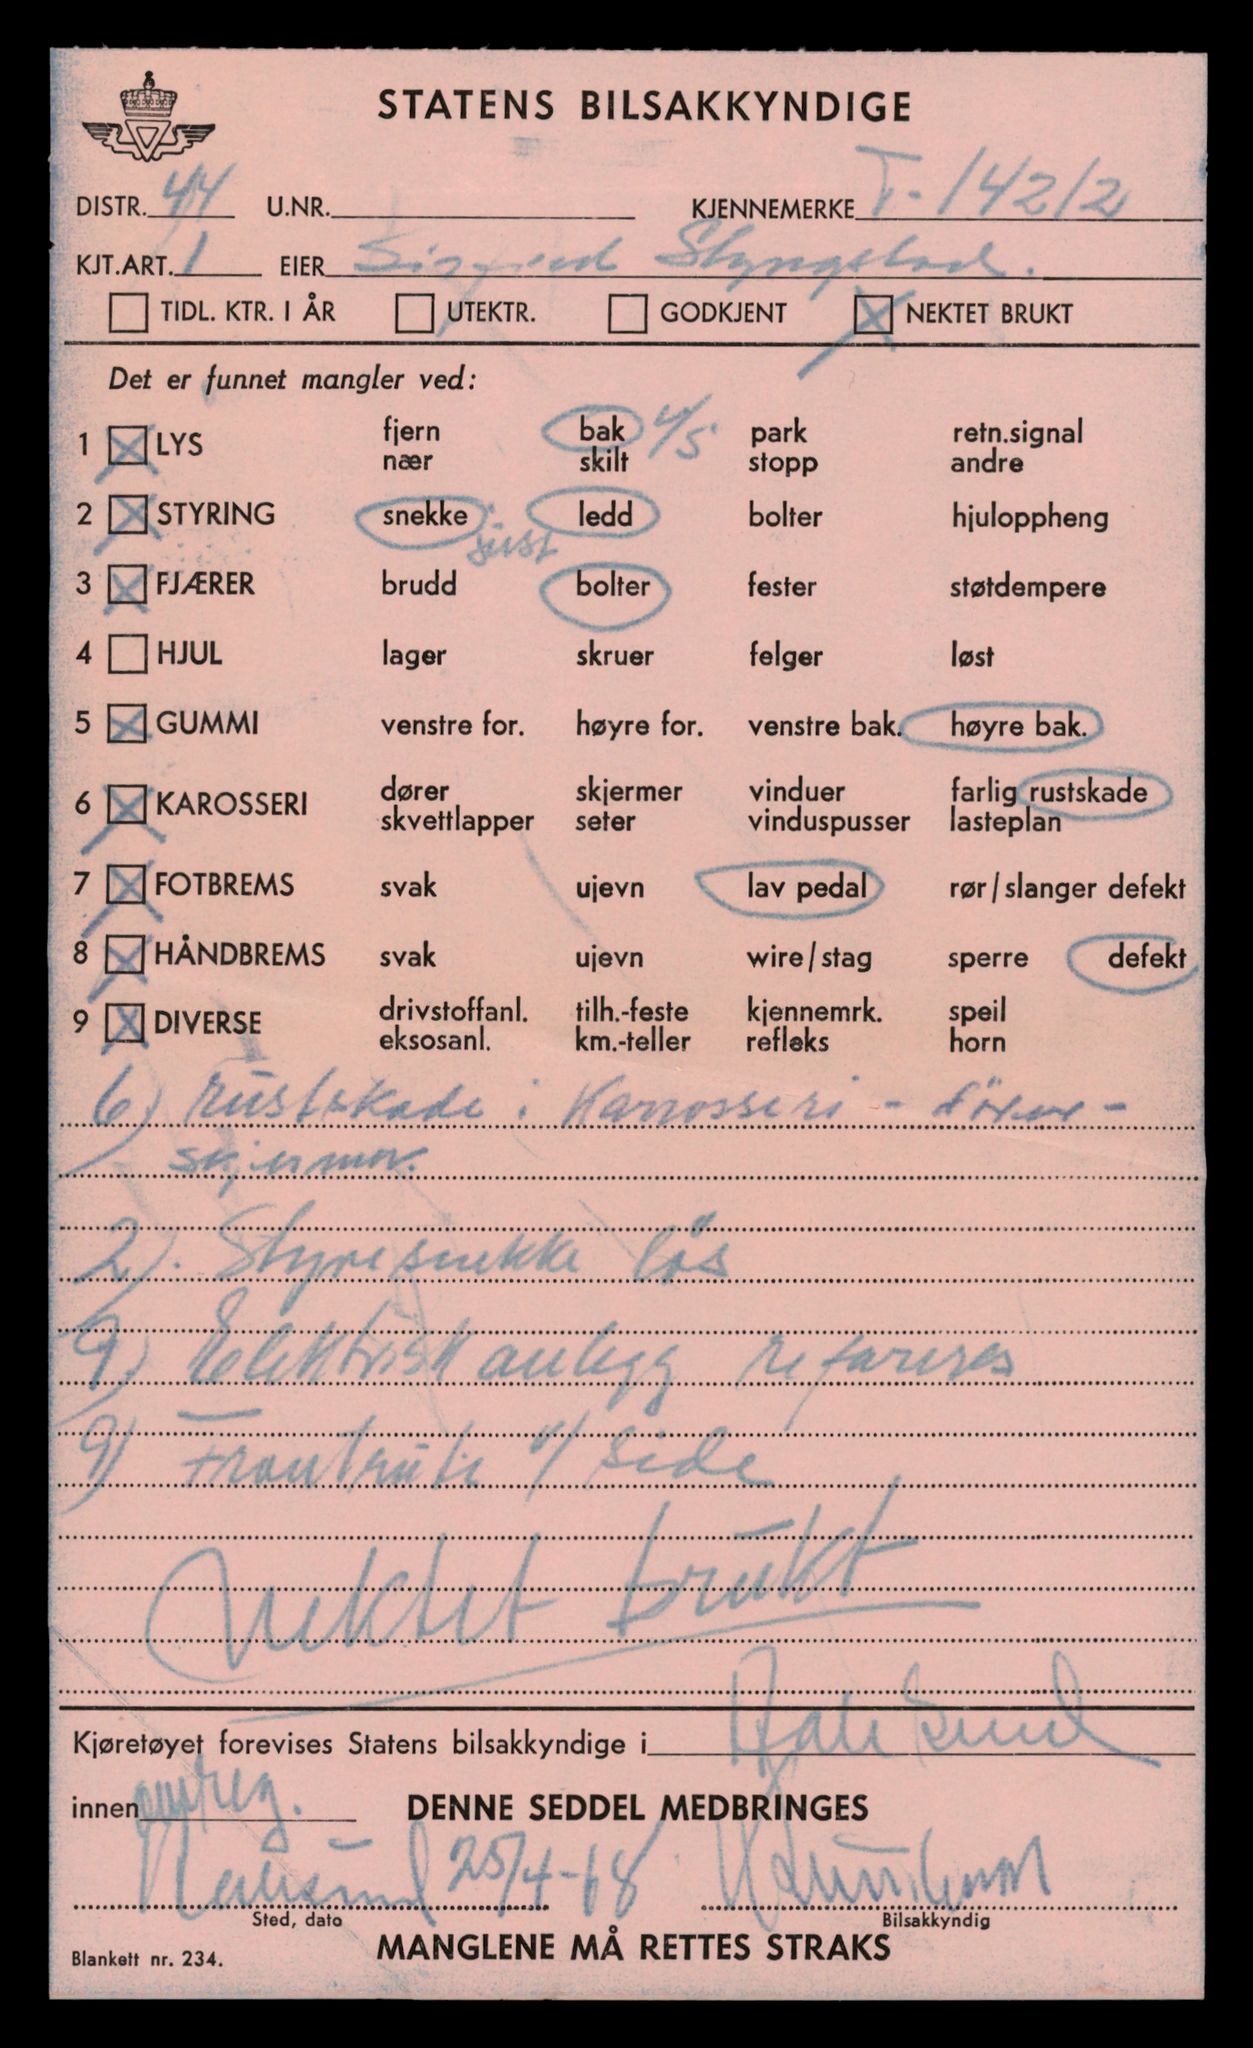 STATENS BILSAKKYNDIGE
DISTR. 44 U.NR. KJENNEMERKE T-14212
KJT.ART. 1 EIER
TIDL. KTR. I ÅR UTEKTR. GODKJENT NEKTET BRUKT
Det er funnet mangler ved:
1 LYS fjern bak park retn.signal
nær skilt stopp andre
2 STYRING snekke ledd bolter hjuloppheng
just
3 FJÆRER brudd bolter fester støtdempere
4 HJUL lager skruer felger løst
5 GUMMI venstre for. høyre for. venstre bak. høyre bak.
6 KAROSSERI dører skjermer vinduer farlig rustskade
skvettlapper seter vinduspusser lasteplan
7 FOTBREMS svak ujevn lav pedal rør/slanger defekt
8 HÅNDBREMS svak ujevn wire/stag sperre defekt
9 DIVERSE drivstoffanl. tilh.-feste kjennemrk. speil
eksosanl. km.-teller refleks horn
6) rustskade i Karrosseri -
skjermer.
2). Styresnekke løs
9) Elektrisk anlegg
9) Frontrute v/ side
Nektet brukt
Kjøretøyet forevises Statens bilsakkyndige i
innen omreg. DENNE SEDDEL MEDBRINGES
25/4-68
Sted, dato Bilsakkyndig
MANGLENE MÅ RETTES STRAKS
Blankett nr. 234.